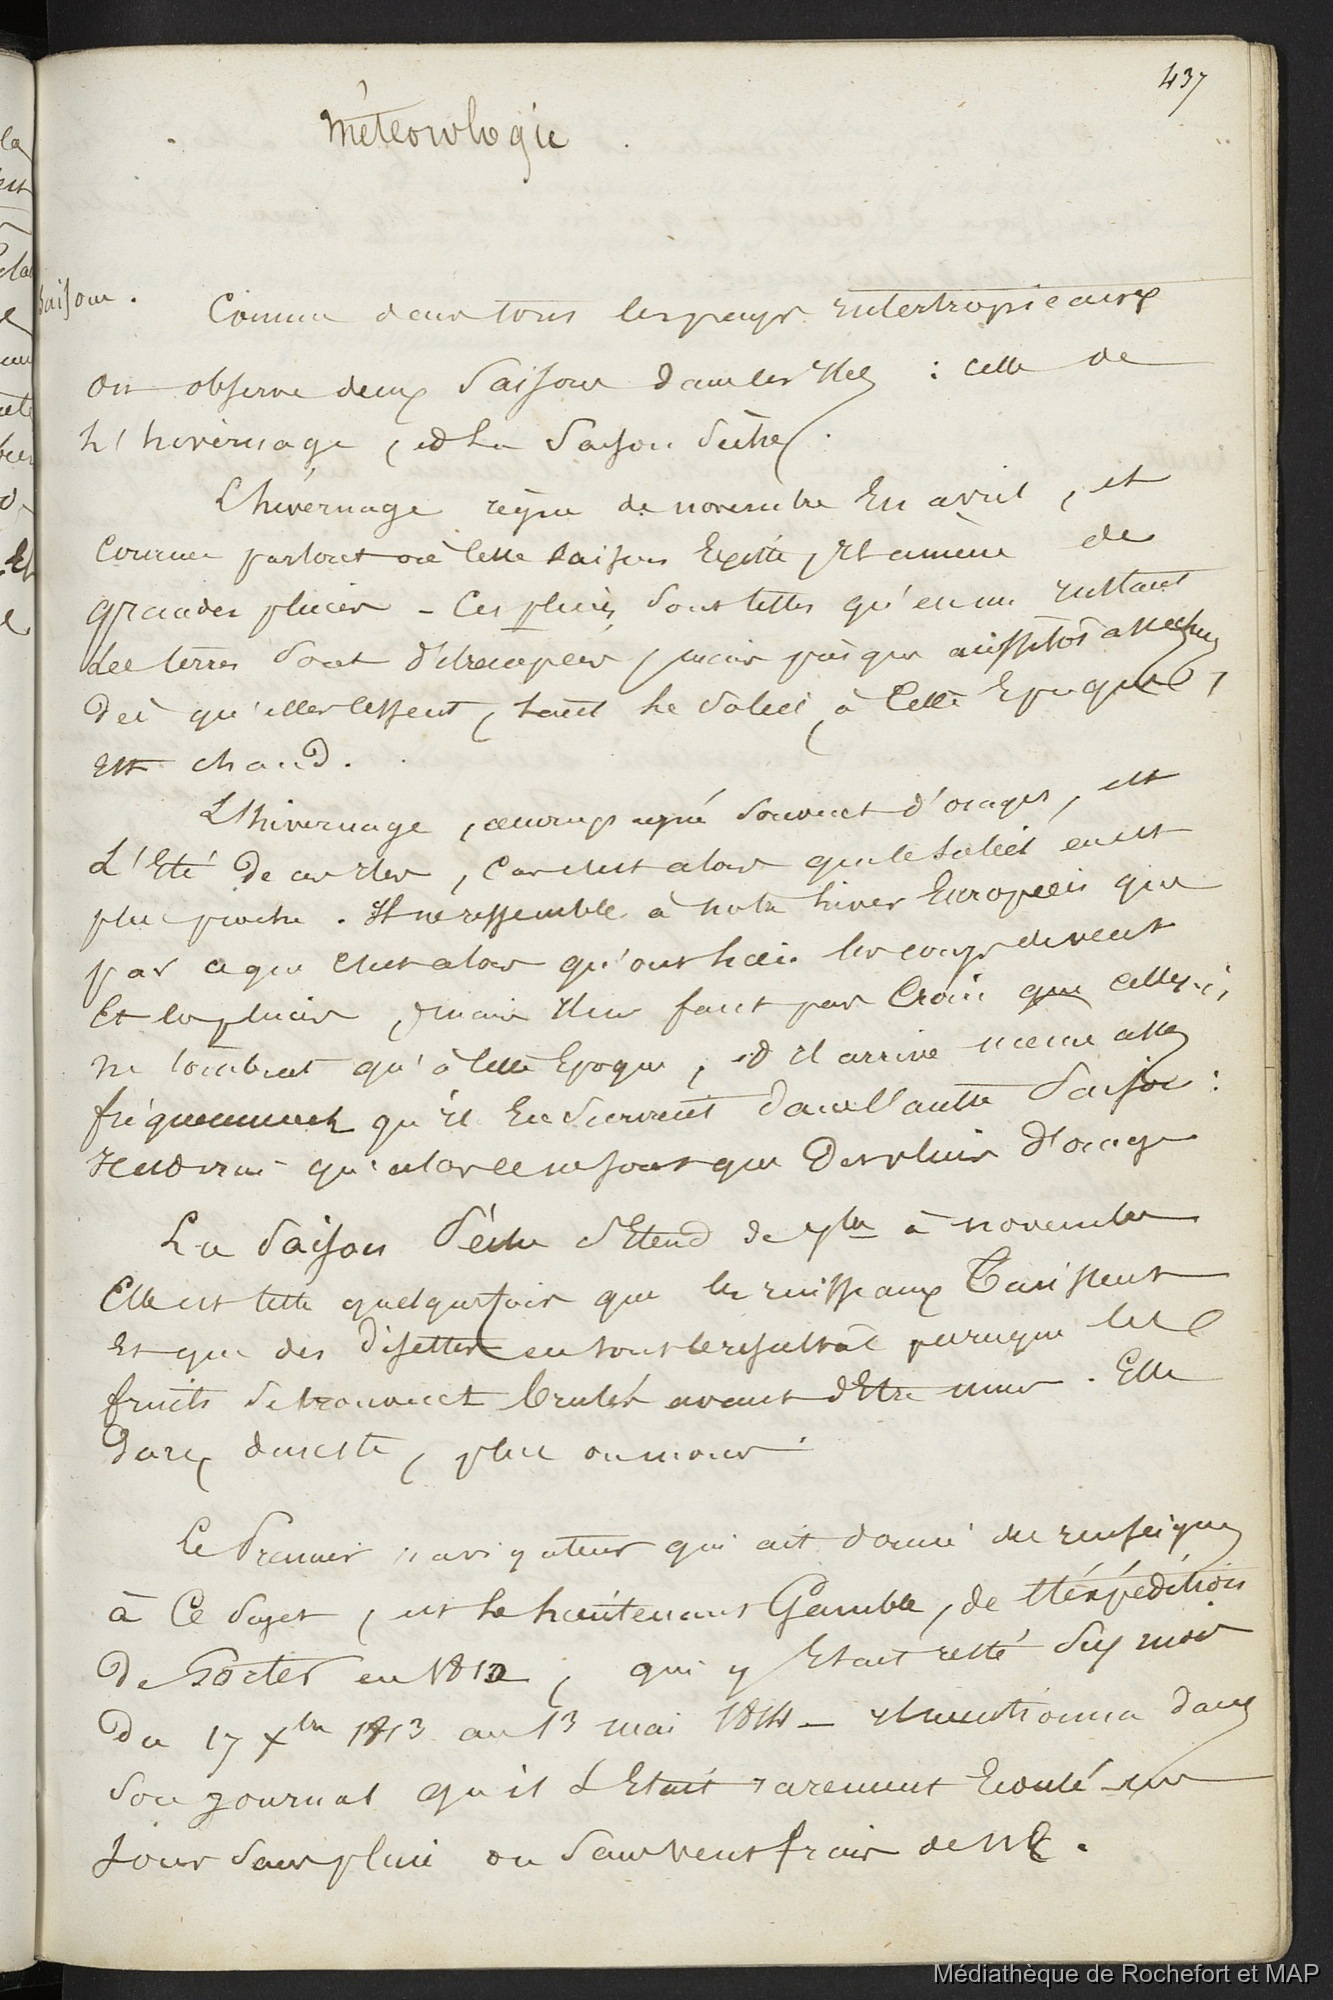 437
Météorologie
Saisons.
Comme dans tous les pays intertropicaux
on observe deux saisons dans les Iles : celle de
l'hivernage, et la saison sèche.
L'hivernage règne de novembre en avril, et
comme partout où cette saison existe, il amène de
grandes pluies – Ces pluies sont telles qu'en un instant
les terres sont détrempées, mais presque aussitôt asséchées
dès qu'elles cessent, tant le soleil, à cette Epoque,
est chaud.
L'hivernage, accompagné souvent d'orages, est
L'Eté de ces Iles, car c'est alors que le soleil en est
plus proche. Il ne ressemble à notre hiver Européen que
parce que c'est alors qu'ont lieu les coups de vent
Et les pluies, mais il ne faut pas croire que celles-ci,
ne tombent qu'à cette Epoque, et il arrive même assez
fréquemment qu'il en survient dans l'autre saison :
Il est vrai qu'alors ce ne sont que des pluies d'orage
La saison sèche s'Etend de à novembre
Elle est telle quelquefois que les ruisseaux tarissent
Et que des disettes en sont le résultat puisque les
fruits se trouvent brulés avant d'Etre murs. Elle
dure, du reste, plus ou moins.
Le Premier navigateur qui ait donné des renseignem
à ce sujet, est le lieutenant Gamble, de l'Expédition
de Porter en 1812, qui y Etait resté six mois
Du 17 Xbre 1813 au 13 mai 1814 – il mentionna dans
son journal qu'il s'Etait rarement Ecoulé un
Jour sans pluie ou sans vents frais de NE.
Médiathèque de Rochefort et MAP